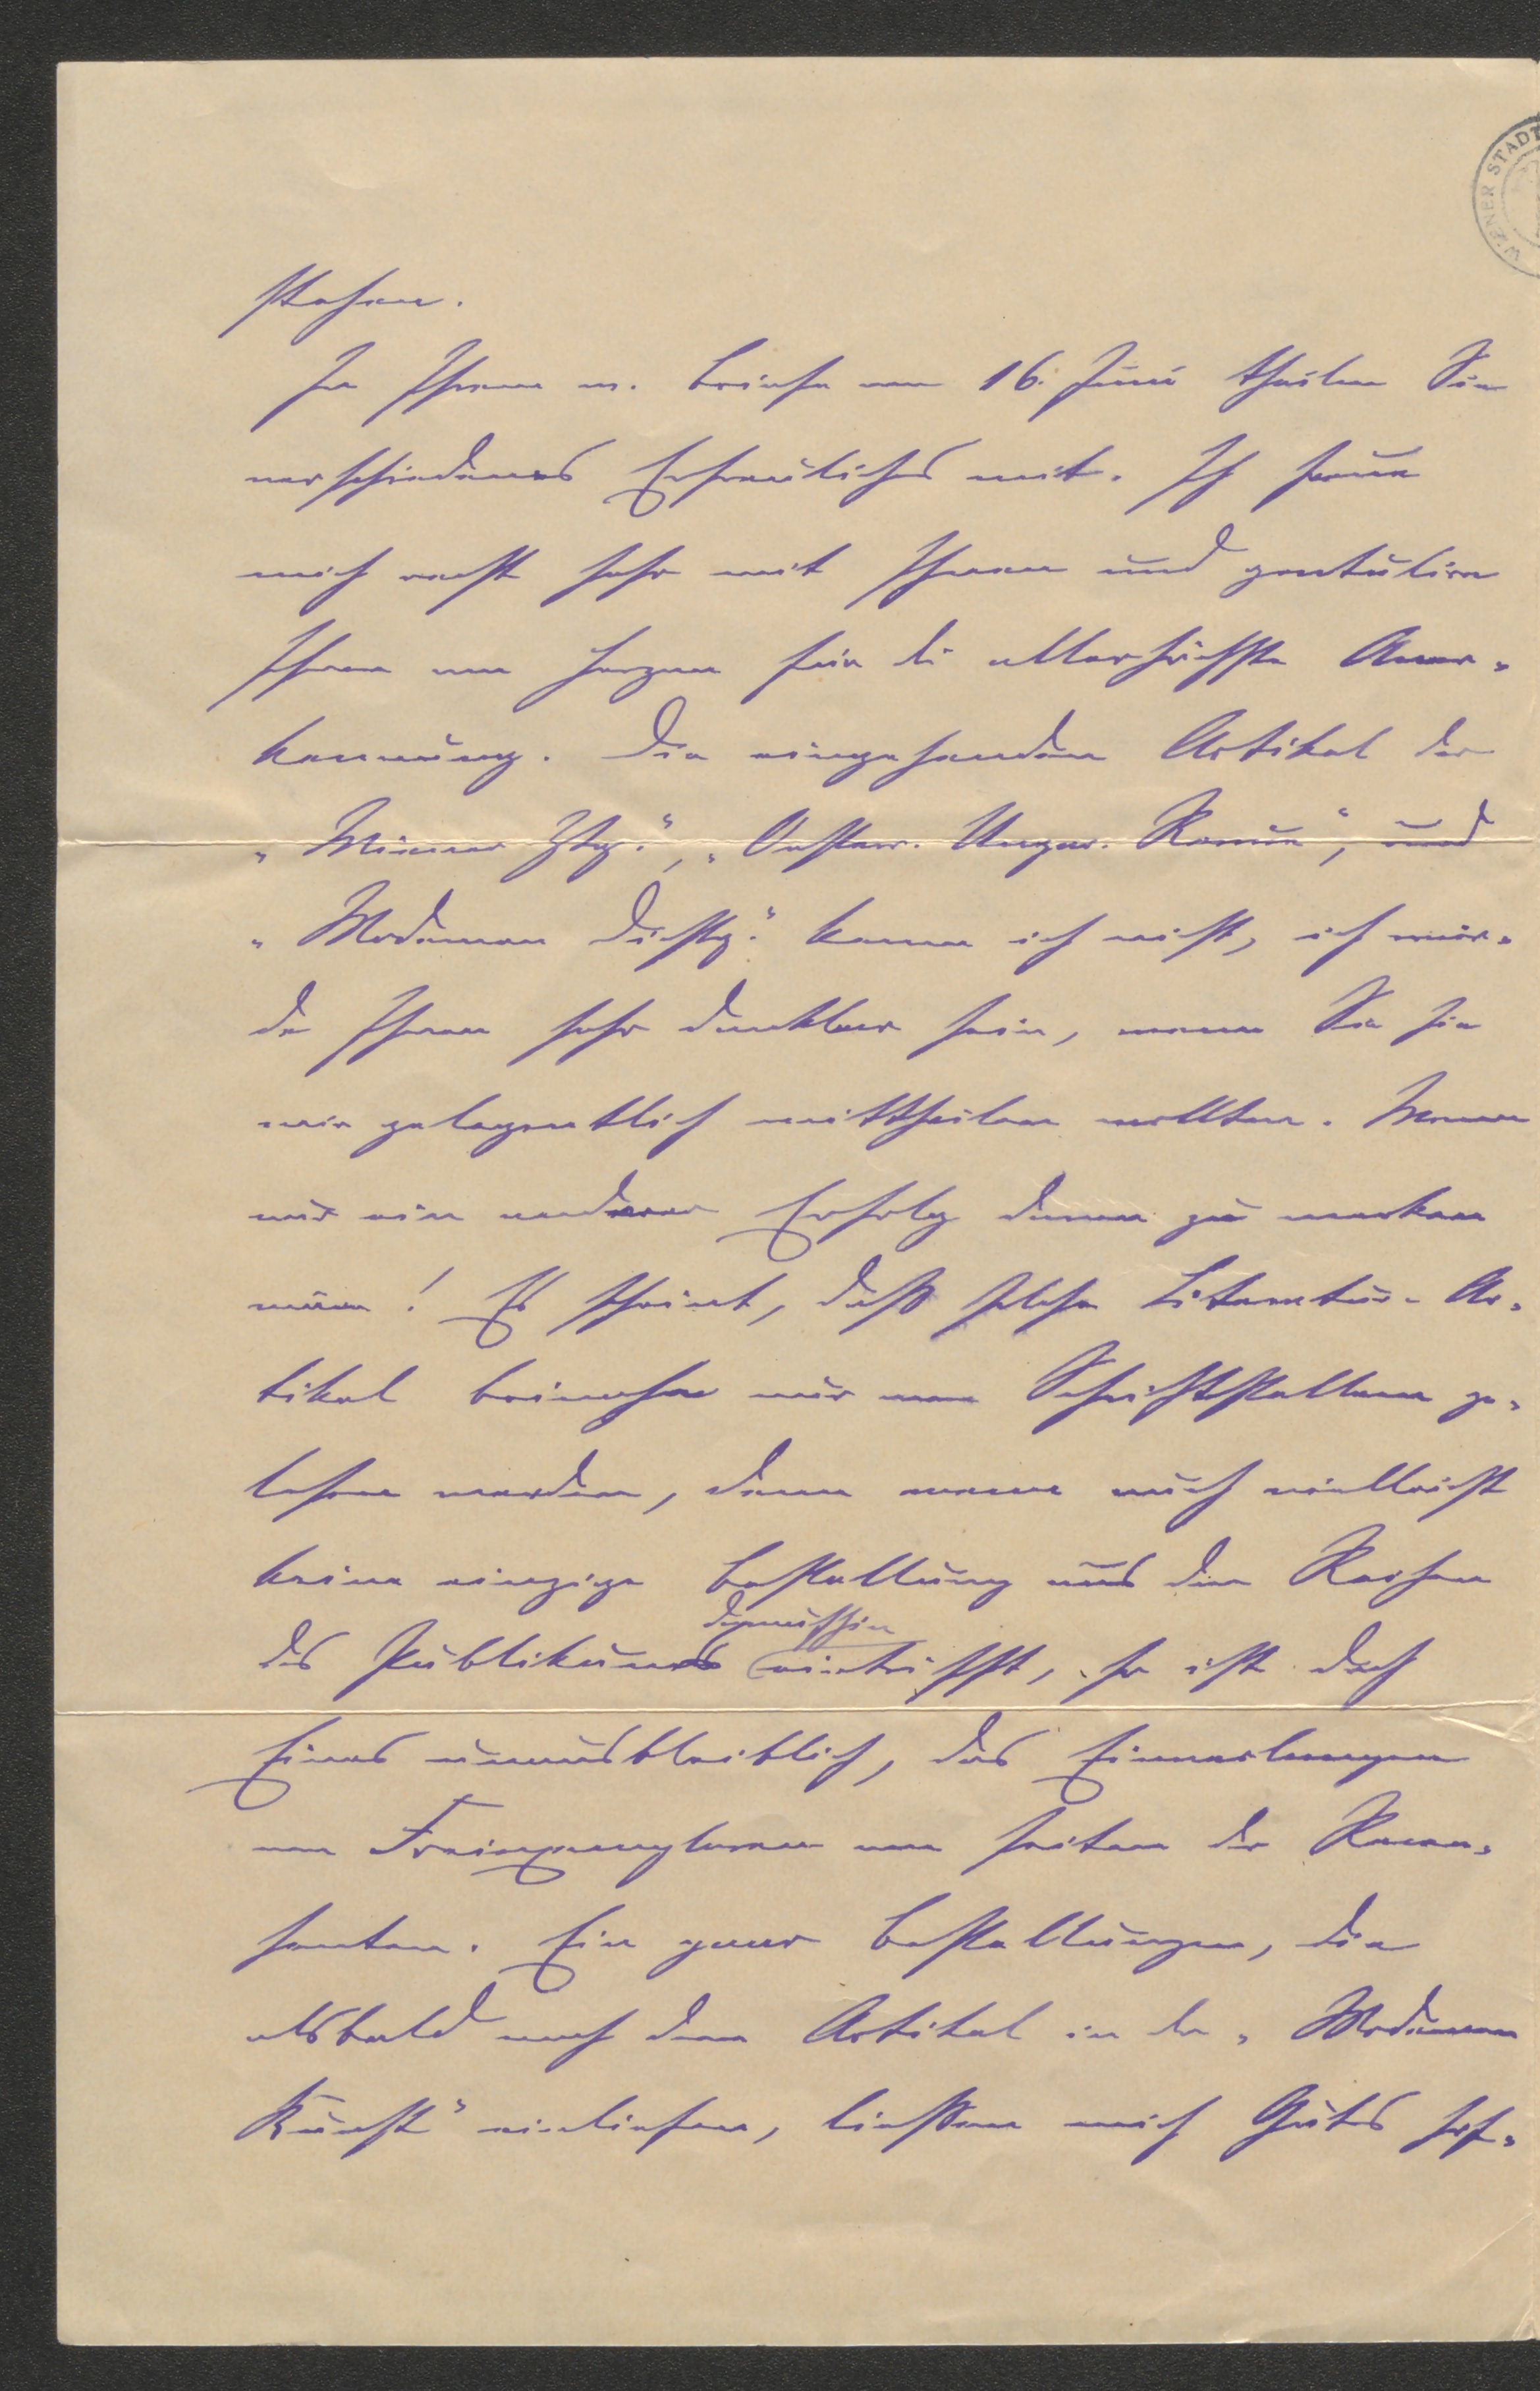 WIENER STADT
stehen.
In Ihrem w. Briefe vom 16. Juni theilen Sie
verschiedenes Erfreuliches mit. Ich freue
mich recht sehr mit Ihnen und gratulire
Ihnen von Herzen für die allerhöchste Aner-
kennung. Die eingehenden Artikel der
„Wiener Ztg.", „Oesterr. Ungar. Revue", und
„Modernen Dichtg." kenne ich nicht, ich wür-
de Ihnen sehr dankbar sein, wenn Sie sie
mir gelegentlich mittheilen wollten. Wenn
nur ein anderer Erfolg davon zu merken
wäre! Es scheint, daß solche Literatur-Ar-
tikel beinahe nur von Schriftstellern ge-
lesen werden, denn wenn auch vielleicht
keine einzige Bestellung aus den Reihen
daraufhin
des Publikums eintrifft, so ist doch
Eines unausbleiblich, das Einverlangen
von Freiexemplaren von Seiten der Recen-
senten. Ein paar Bestellungen, die
alsbald nach dem Artikel in der „Modernen
Kunst" einliefen, ließen mich Gutes hof-